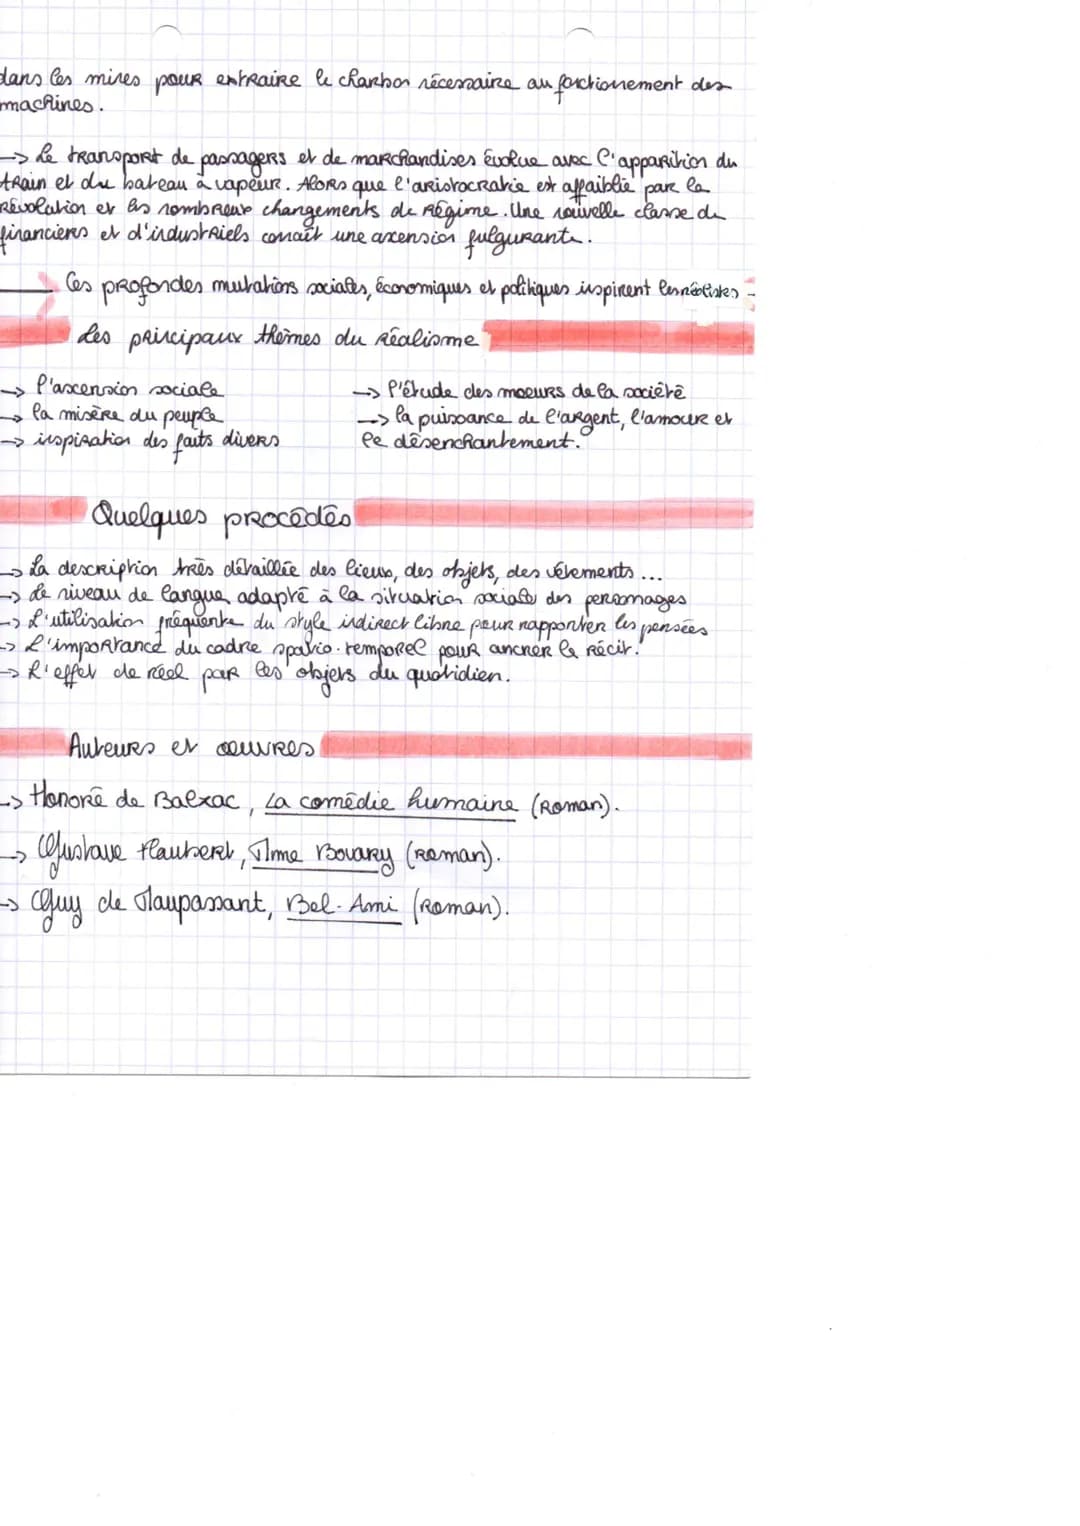 dans les mines pour extraire le charbon nécessaire au fonctionement des
machines.
-> Le transport de passagers et de marchandises évolue avec l'apparition du
train et du bateau à vapeur. Alors que l'aristocratie est affaiblie par la
Révolution et les nombreux changements de régime. Une nouvelle classe de
financiers et d'industriels connaît une axension fulgurante.
Ces profondes mutations sociales, économiques et politiques inspirent les réalistes
Les principaux thèmes du réalisme
-> l'ascension sociale
-> la misère du peuple
-> inspiration des faits divers
-> l'étude des moeurs de la société
-> la puissance de l'argent, l'amour et
le désenchantement.
Quelques procédés
-> La description très détaillée des lieux, des objets, des vêtements ...
-> Le niveau de langue adapté à la situation sociale des personnages
-> L'utilisation fréquente du style indirect libre pour rapporter les pensées
-> L'importance du cadre spatio-temporel pour ancrer le récit.
-> L'effet de réel par les objets du quotidien.
Auteurs et œuvres
-> Honoré de Balzac, La comédie humaine (Roman).
-> Gustave Flaubert, Mme Bovary (Roman).
-> Guy de Maupassant, Bel-Ami (Roman).